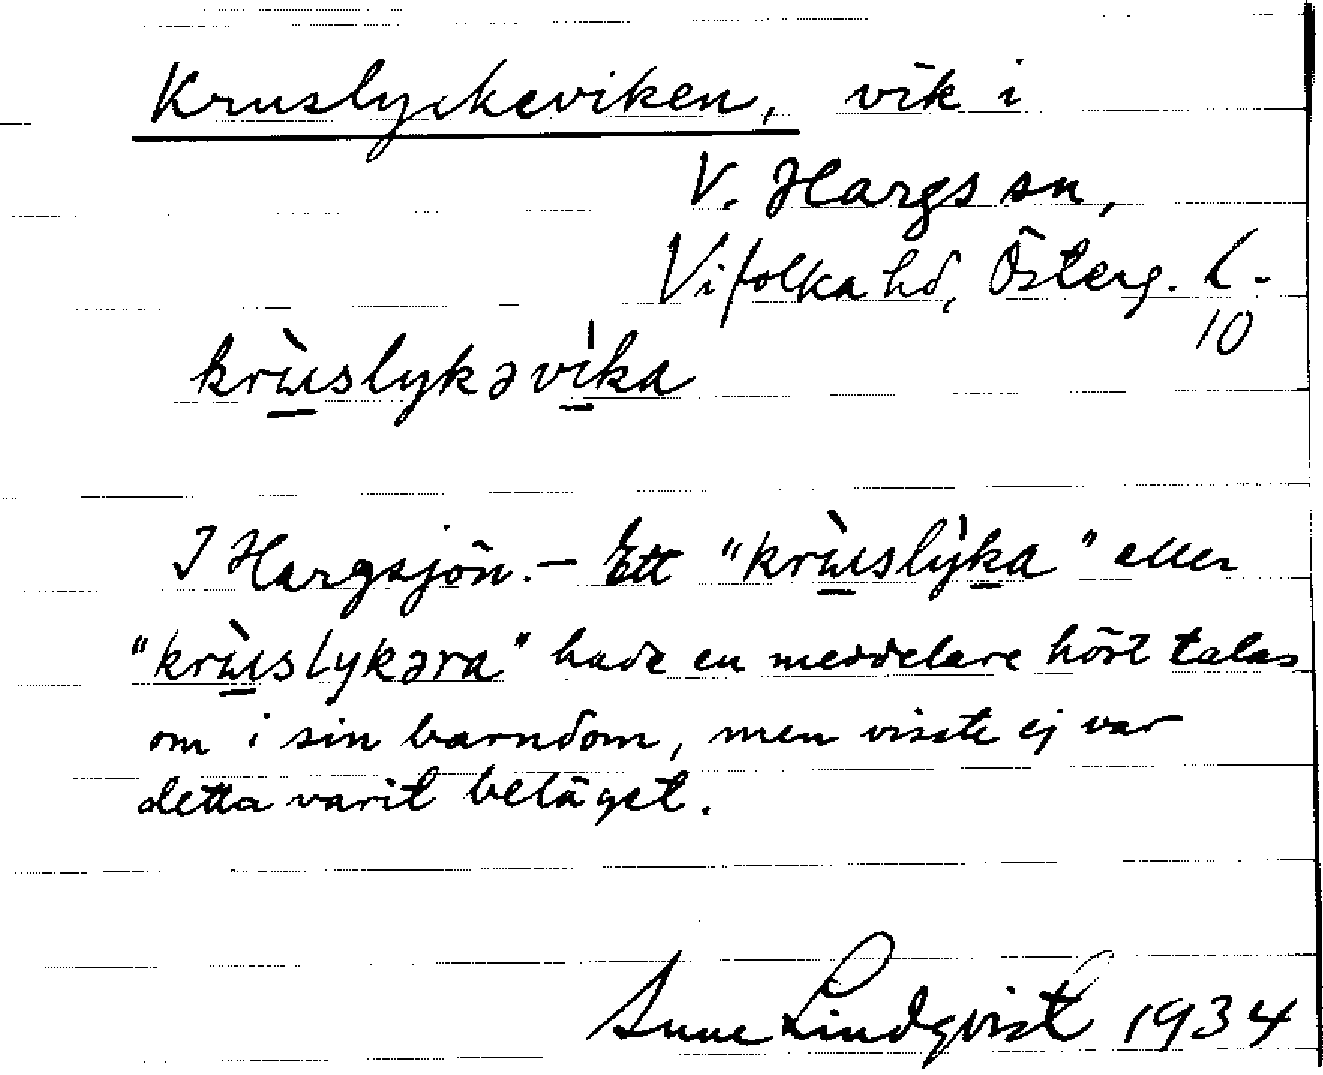 Kruslyckeviken, vik i
V. Hargs sn,
Vifolka hd, Österg. L.
10
krùslykəvìka
I Hargsjön. – Ett "krùslỳka" eller
"krùslykəra" hade en meddelare hört talas
om i sin barndom, men visste ej var
detta varit beläget.
Sune Lindqvist 1934